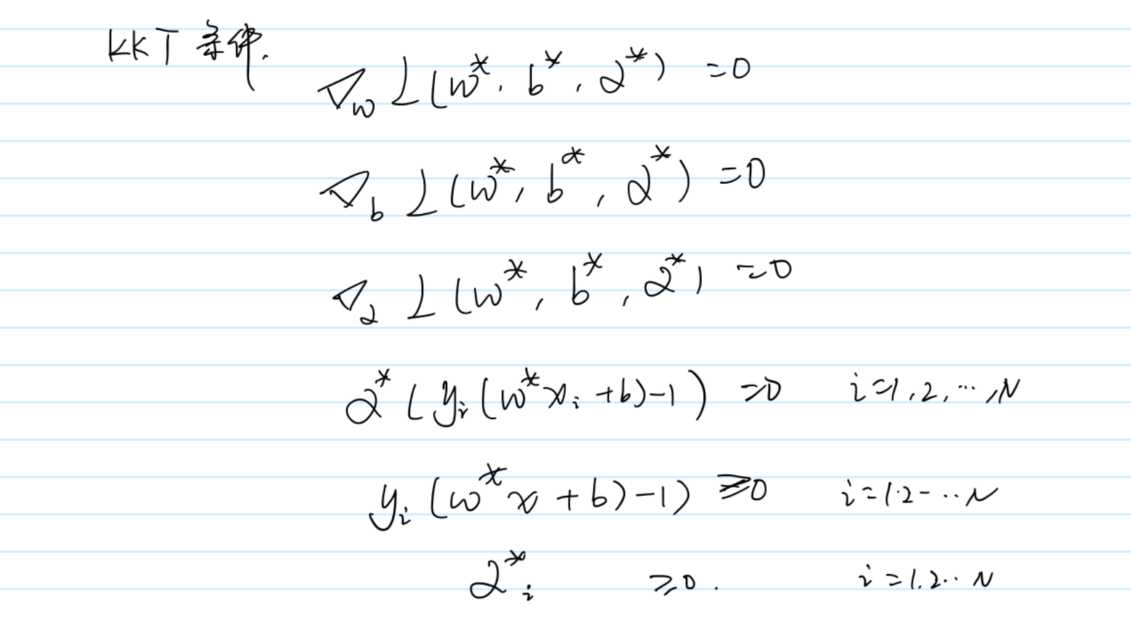 KKT 条件.
∇_w L(w^*, b^*, α^*) = 0
∇_b L(w^*, b^*, α^*) = 0
∇_α L(w^*, b^*, α^*) = 0
α^* (y_i (w^* x_i + b) - 1) = 0 i = 1, 2, ..., N
y_i (w^* x + b) - 1) ≥ 0 i = 1. 2 - ... N
α^*_i ≥ 0. i = 1. 2 .. N